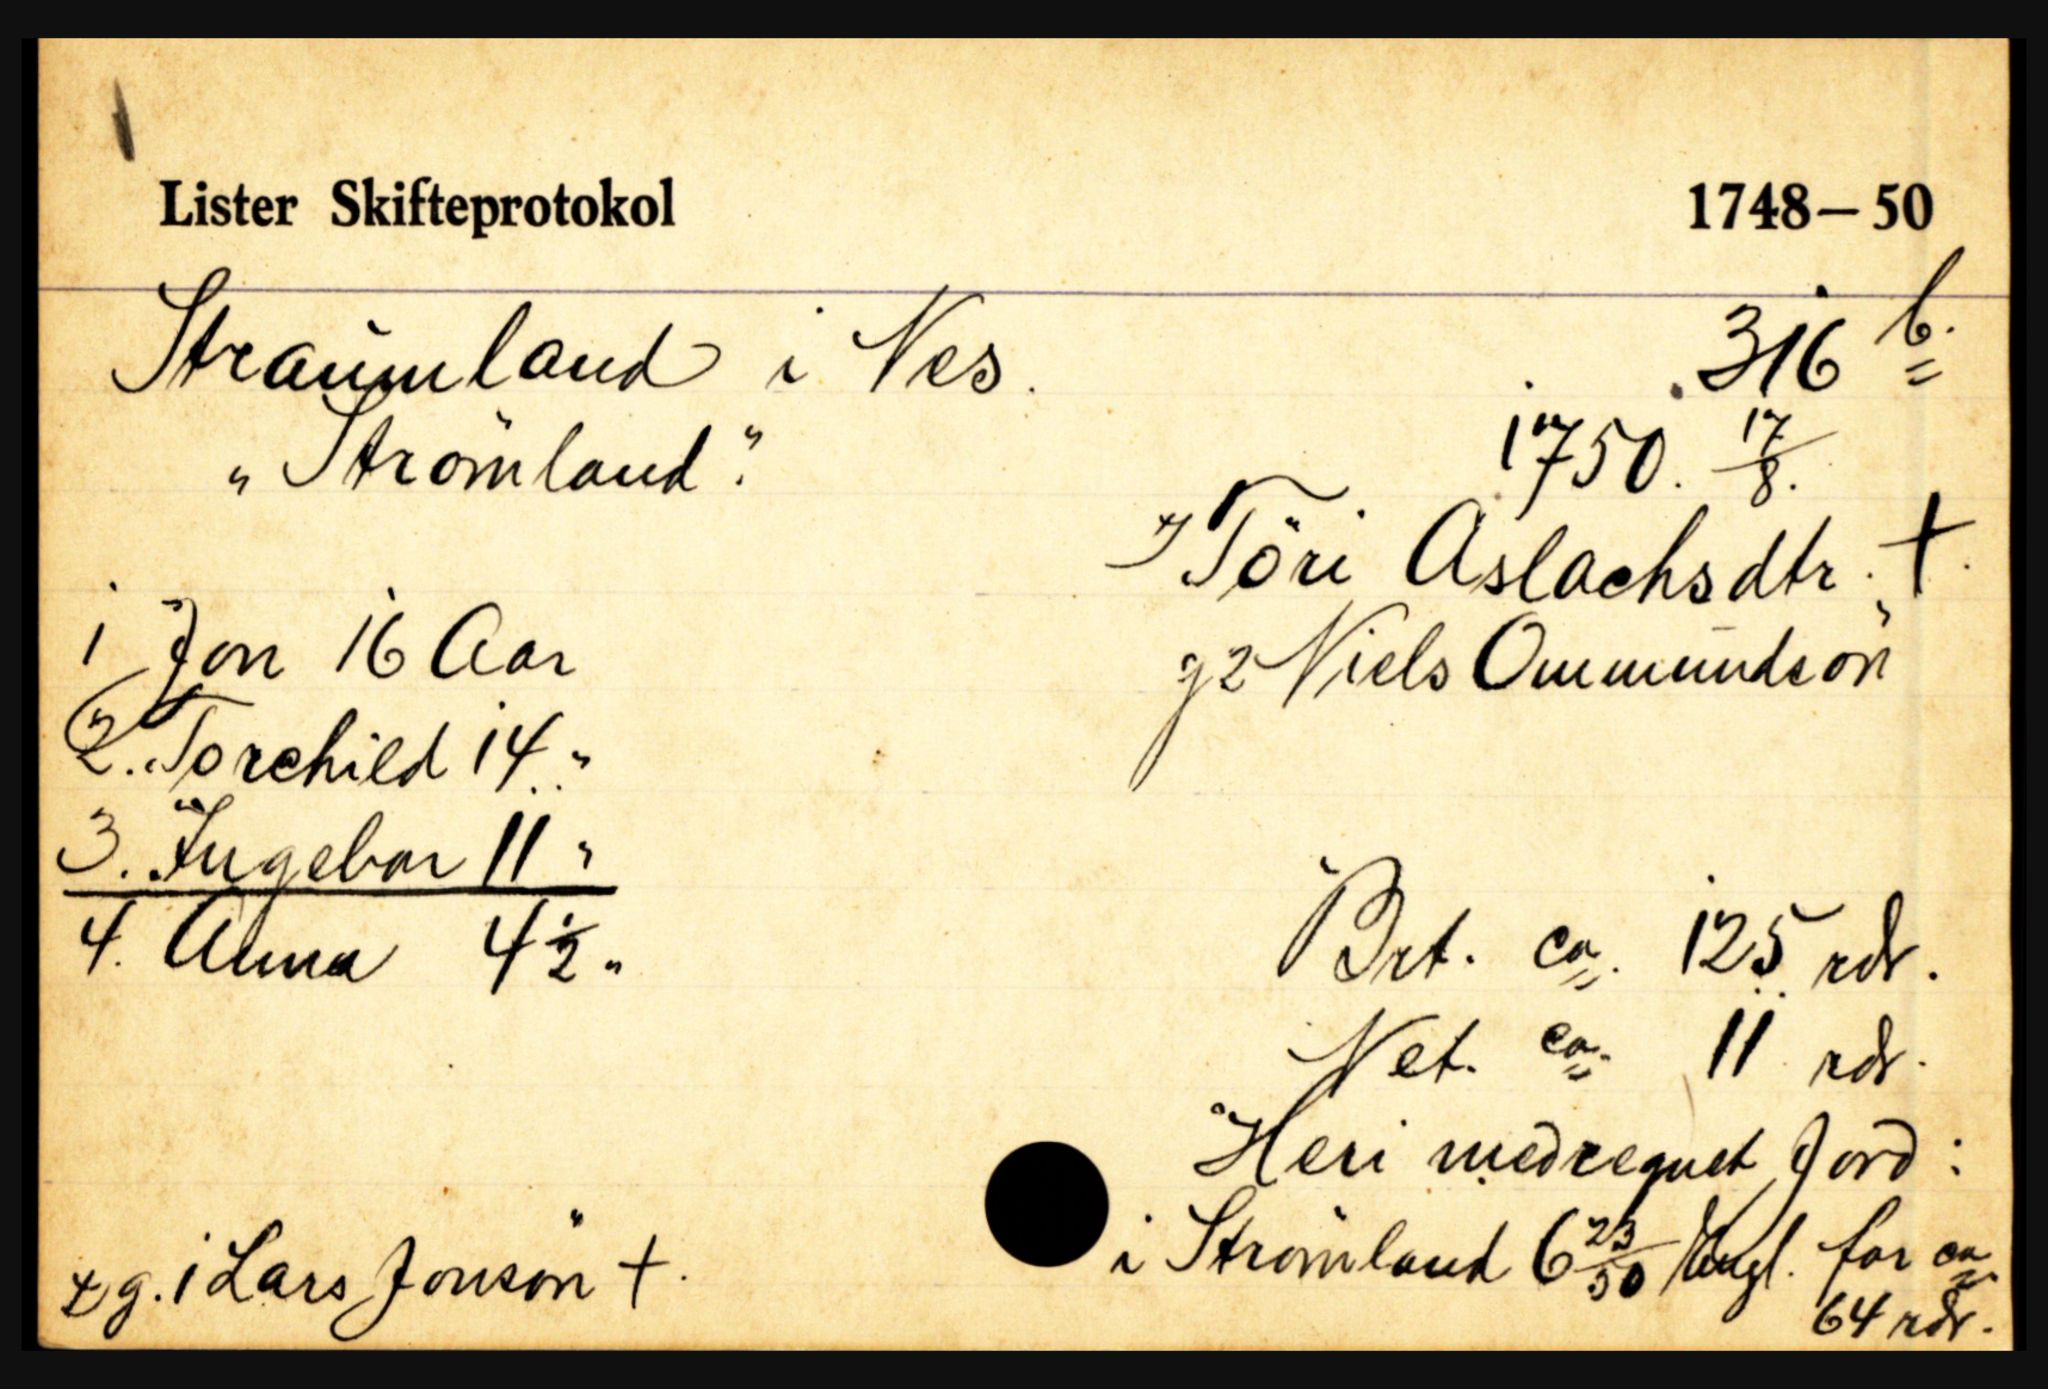 Lister Skifteprotokol 1748–50
Straumland i Nes. 316 b.
"Strömland". 1750. 17/8.
Töri Aslachsdtr. †.
1 Jon 16 Aar
g 2 Niels Ommundsön
2. Torchild 14 "
3. Ingebor 11 "
4. Anna 4 1/2 "
Brt. ca. 125 rdr.
Net. ca. 11 rdr.
Heri medregnet Jord:
i Strömland 6 23/50 Engl. for ca
64 rdr.
g. 1 Lars Jonsön †.